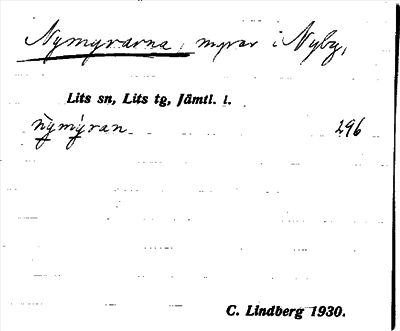 Nymyrarna, myrar i Nyby,
Lits sn, Lits tg, Jämtl. l.
nỳmýran 296
C. Lindberg 1930.